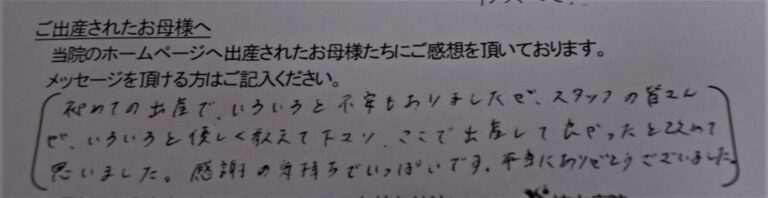 ご出産されたお母様へ
当院のホームページへ出産されたお母様たちにご感想を頂いております。
メッセージを頂ける方はご記入ください。
初めての出産で、いろいろと不安もありましたが、スタッフの皆さん
が、いろいろと優しく教えて下さり、ここで出産して良かったと改めて
思いました。感謝の気持ちでいっぱいです。本当にありがとうございました。